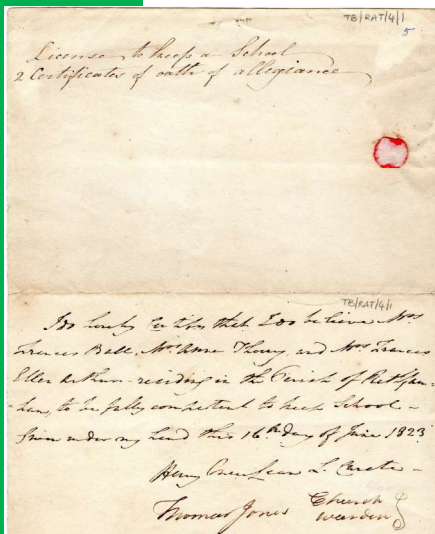 TB/RAT/4/1
5
License to keep a School
2 Certificates of oath of allegiance
TB/RAT/4/1
I do hereby Certify that I do believe Mrs
Frances Ball, Mrs Anne Therry, and Mrs Frances
Ellen Arthur - residing in the Parish of Rathfarn-
ham, to be fully competent to keep School -
Given under my hand this 16th day of June 1823
Henry L. Curate -
Thomas Jones Church
warden